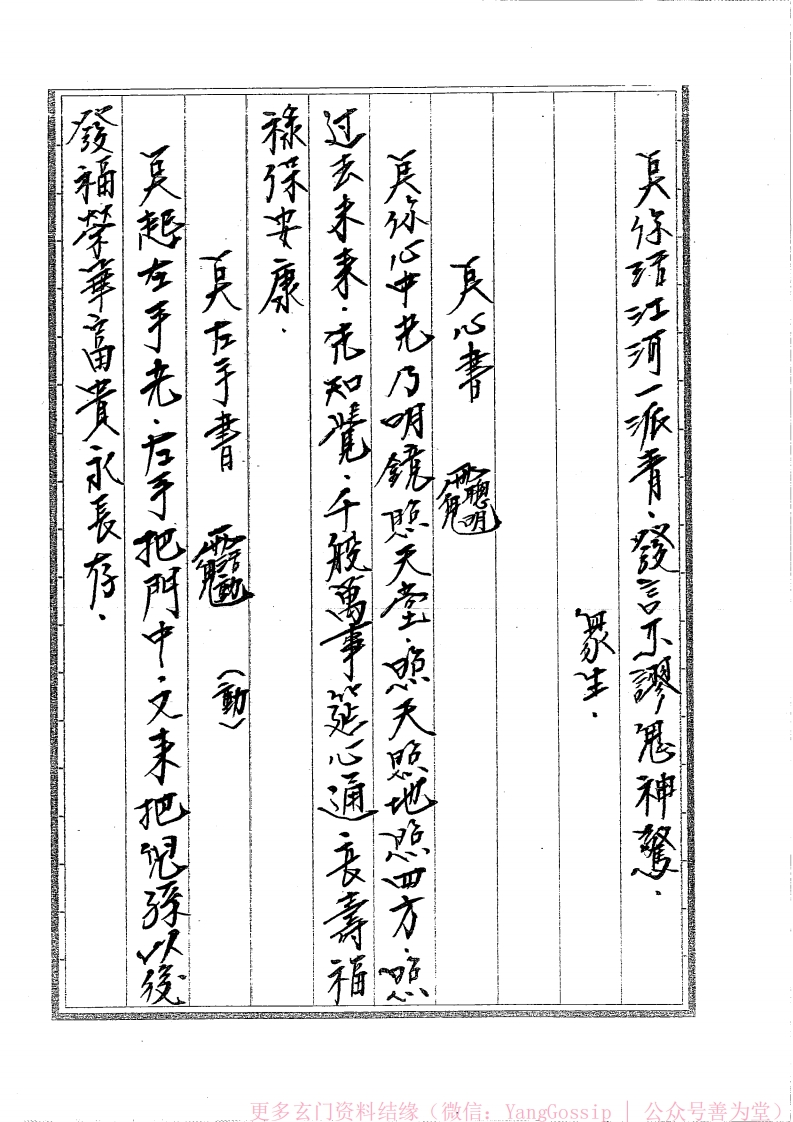 吴你活江河一派青．發言不謬鬼神驚．
衆生．
吴心書 聰明
吴你心中光乃明鏡照天堂．照天照地照四方．照
过去未来．先知覺．千般萬事筵心通 長壽福
禄保安康．
吴左手書 （動）
吴起左手光．左手把門中．文来把兒孫以後
發福榮華富貴永長存．
更多玄门资料结缘（微信：YangGossip | 公众号善为堂）